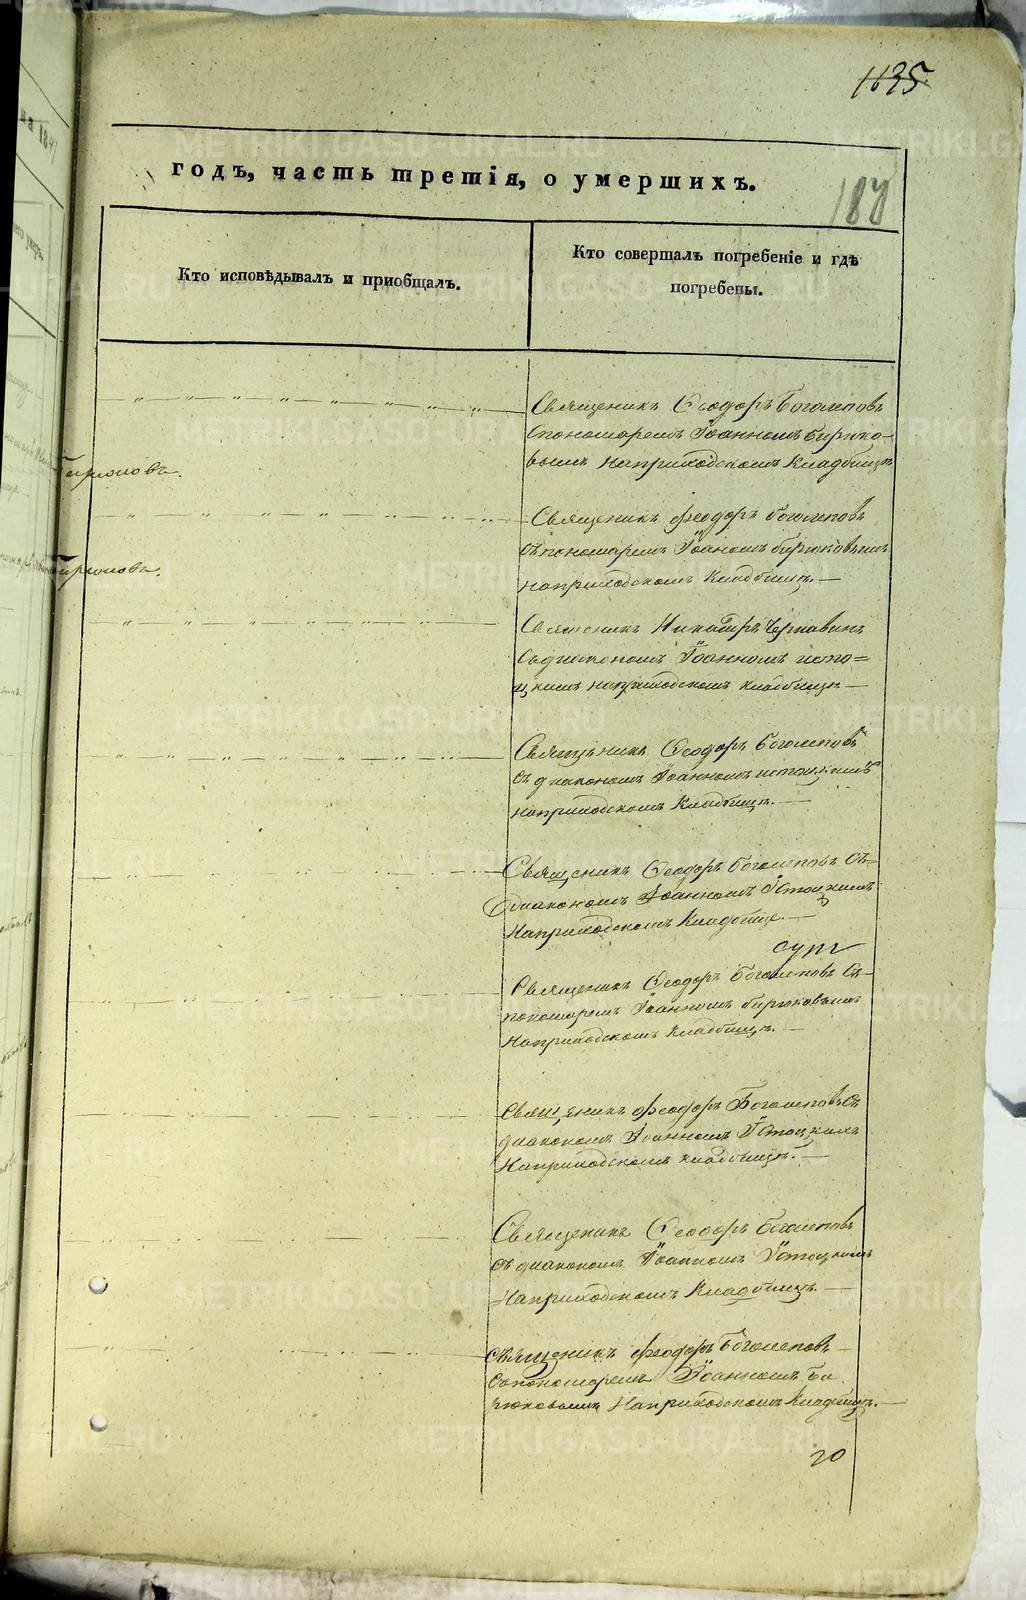 1135.
годъ, часть третія, о умершихъ.
180
Кто исповѣдывалъ и приобщалъ.
Кто совершалъ погребеніе и гдѣ
погребены.
Священикъ Ѳеодоръ Боголеповъ
спономаремъ Іоанномъ Бирюко-
вымъ наприходскомъ Кладбищѣ
Бирюковъ.
Священикъ Феодоръ Боголеповъ
съ пономаремъ Іоаномъ бирюковымъ
наприходскомъ Кладбищѣ.—
Бирюковъ.
Священикъ Никаноръ Чернавинъ
съдиакономъ Іоанномъ исто=
цкимъ наприходскомъ кладбищѣ—
Священикъ Ѳеодоръ Боголеповъ
съ диакономъ Іоанномъ истоцкимъ
наприходскомъ Кладбищѣ.—
Священикъ Ѳеодоръ Боголеповъ Съ=
диакономъ Іоанномъ Істоцкимъ
Наприходскомъ Кладбище.—
Священикъ Ѳеодоръ Боголеповъ Съ—
пономаремъ Іоанномъ бирюковымъ
Наприходскомъ Кладбищѣ.—
Священикъ Феодоръ Боголеповъ Съ
диакономъ Іоанномъ Істоцкимъ
Наприходскомъ кладбищѣ.—
Священикъ Ѳеодоръ Боголеповъ
съ диакономъ Іоанномъ Істоцкимъ
Наприходскомъ Кладбищѣ.—
Священикъ Феодоръ Боголеповъ—
Сопономаремъ Іоанномъ Би
рюковымъ Наприходскомъ Кладбищѣ.—
20
METRIKI.GASO-URAL.RU